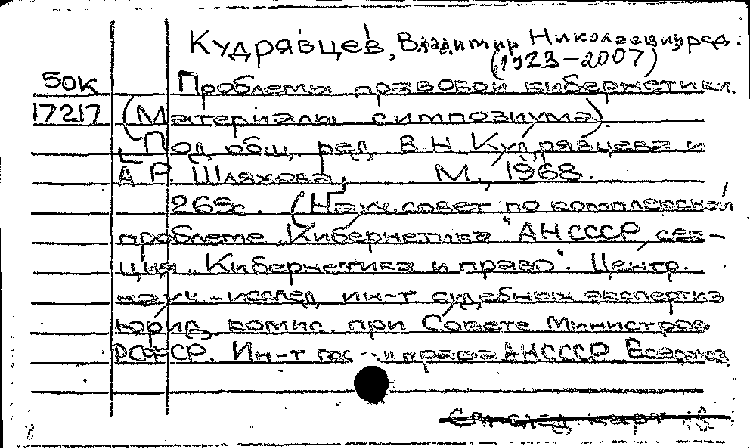 Кудрявцев, Владимир Николаевич, ред.
(1923-2007)
50К Проблемы правовой кибернетики.
17217 (Материалы симпозиума).
[Под общ. ред. В.Н. Кудрявцева и
А.Р. Шляхова]. М., 1968.
269с. (Науч. совет по комплексной
проблеме „Кибернетика" АН СССР, сек-
ция „Кибернетика и право". Центр.
науч.-исслед. ин-т судебных экспертиз
юрид. комис. при Совете Министров
РСФСР. Ин-т гос. и права АН СССР.
См. след. карт.